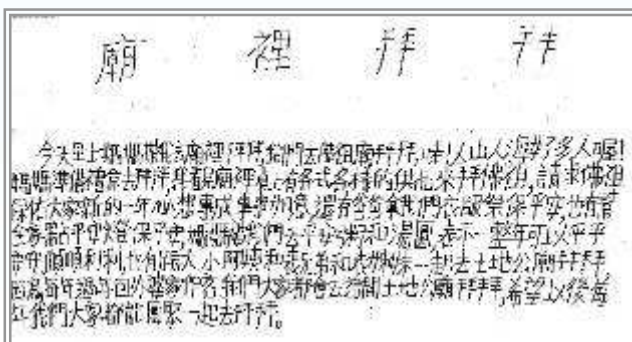 廟裡拜拜
今天早上媽媽說廟裡拜拜,我們去佛祖廟拜拜,哇!人山人海好多人喔!
媽媽準備禮金去拜拜,看見廟裡有各式各樣的供品來拜佛祖,請求佛祖
保佑大家新的一年心想事成事事如意,還有爸爸拿我們衣服祭保平安,也有替
全家點平安燈,保平安,媽媽說我們去平安粥和湯圓,表示一整年可以平平
安安順順利利,也有跟大小阿姨和表兄弟和表姊妹一起去土地公廟拜拜
因為每年過年回外婆家作客,我們大家都會去土地公廟拜拜,希望以後每
年我們大家都能團聚一起去拜拜。